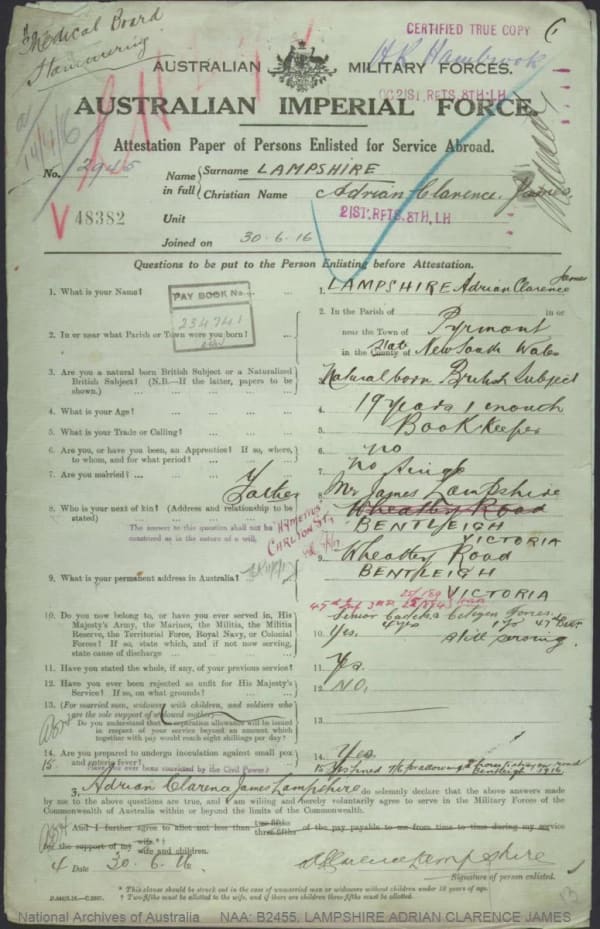 Medical Board
CERTIFIED TRUE COPY
AUSTRALIAN MILITARY FORCES.
OC 21ST. RFTS. 8TH. LH
AUSTRALIAN IMPERIAL FORCE.
Attestation Paper of Persons Enlisted for Service Abroad.
No. 2945
Name in full
Surname LAMPSHIRE
Christian Name Adrian Clarence James
V 48382
Unit 21ST. RFTS. 8TH. LH
Joined on 30.6.16
Questions to be put to the Person Enlisting before Attestation.
1. What is your Name? ... 1. LAMPSHIRE Adrian Clarence James
PAY BOOK No.
2. In or near what Parish or Town were you born? ... 2. In the Parish of in or
near the Town of Pyrmont
in the County of State New South Wales
3. Are you a natural born British Subject or a Naturalized
British Subject? (N.B.—If the latter, papers to be
shown.) ... 3. Natural born British Subject
4. What is your Age? ... 4. 19 years 1 month
5. What is your Trade or Calling? ... 5. Book Keeper
6. Are you, or have you been, an Apprentice? If so, where,
to whom, and for what period? ... 6. no
7. Are you married? ... 7. no Single
8. Who is your next of kin? (Address and relationship to be
stated) Father 8. Mr James Lampshire
Wheatley Road
BENTLEIGH
VICTORIA
The answer to this question shall not be
construed as in the nature of a will.
HYMETTUS
CARLTON ST.
9. What is your permanent address in Australia? 9. Wheatley Road
BENTLEIGH
VICTORIA
10. Do you now belong to, or have you ever served in, His
Majesty's Army, the Marines, the Militia, the Militia
Reserve, the Territorial Force, Royal Navy, or Colonial
Forces? If so, state which, and if not now serving,
state cause of discharge ... 10. Yes. Senior Cadets 4 yrs Citizen Forces.
1 yr
still serving.
11. Have you stated the whole, if any, of your previous service? 11. Yes.
12. Have you ever been rejected as unfit for His Majesty's
Service? If so, on what grounds? ... 12. NO.
13. (For married men, widowers with children, and soldiers who
are the sole support of widowed mother—
Do you understand that no separation allowance will be issued
in respect of your service beyond an amount which
together with pay would reach eight shillings per day? 13.
14. Are you prepared to undergo inoculation against small pox
and enteric fever? ... 14. Yes
15 Have you ever been convicted by the Civil Power?
Bentleigh 1916
I, Adrian Clarence James Lampshire do solemnly declare that the above answers made
by me to the above questions are true, and I am willing and hereby voluntarily agree to serve in the Military Forces of the
Commonwealth of Australia within or beyond the limits of the Commonwealth.
And I further agree to allot not less than two-fifths three-fifths of the pay payable to me from time to time during my service
for the support of my wife.*† wife and children.
Date 30.6.16. A Clarence Lampshire
Signature of person enlisted.
* This clause should be struck out in the case of unmarried men or widowers without children under 18 years of age.
† Two-fifths must be allotted to the wife, and if there are children three-fifths must be allotted.
National Archives of Australia NAA: B2455, LAMPSHIRE ADRIAN CLARENCE JAMES